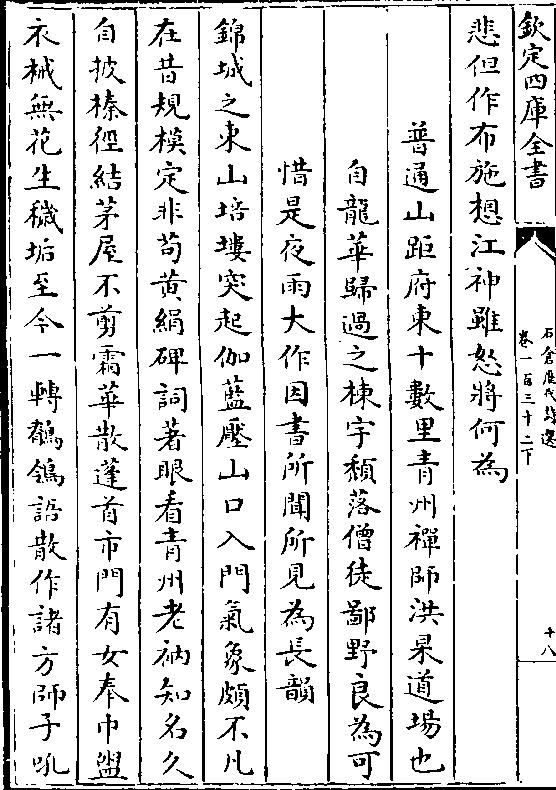 欽定四庫全書
石倉歷代詩選
卷一百三十二下
十八
悲但作布施想江神雖怒將何為
普通山距府東十數里青州禪師洪杲道場也
自龍華歸過之棟宇頽落僧徒鄙野良為可
惜是夜雨大作因書所聞所見為長韻
錦城之東山培塿突起伽藍壓山口入門氣象頗不凡
在昔規模定非苟黄絹碑詞著眼看青州老衲知名久
自披榛徑結茅屋不剪霜華散蓬首市門有女奉巾盥
衣裓無花生穢垢至今一轉鵓鴿語散作諸方師子吼